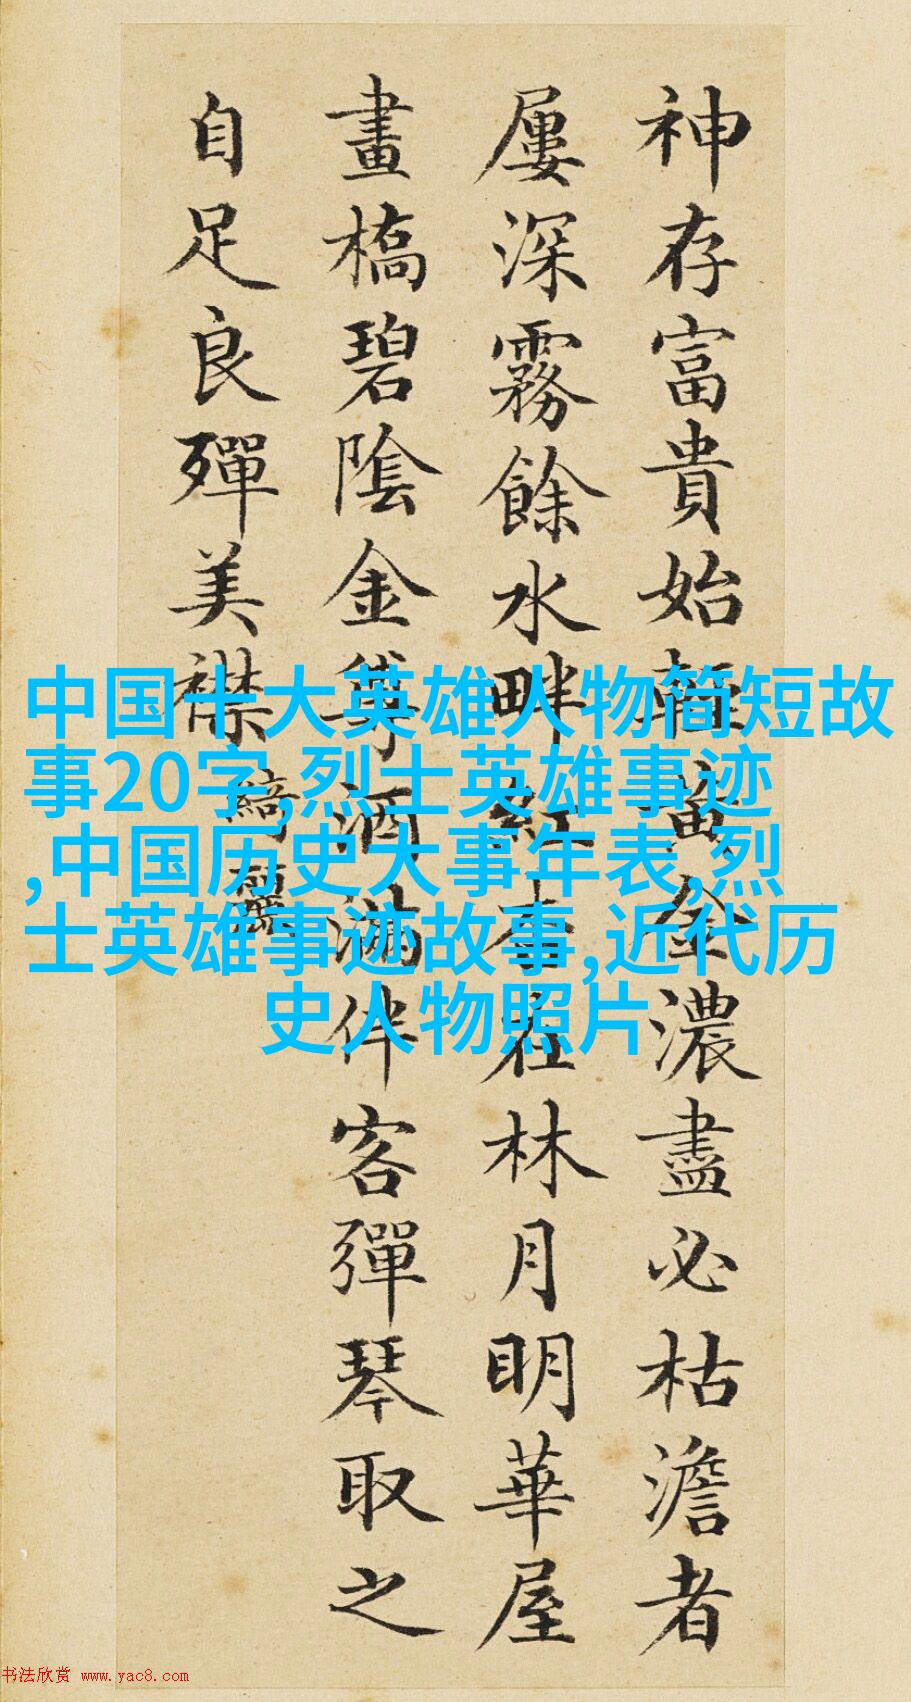 神存富貴始輕黃金濃盡必枯澹者
屢深霧餘水畔紅杏在林月明華屋
畫橋碧陰金尊酒滿伴客彈琴取之
自足良殫美襟
綺麗
中国十大英雄人物简短故
事20字,烈士英雄事迹
,中国历史大事年表,烈
士英雄事迹故事,近代历
史人物照片
书法欣赏 www.yac8.com